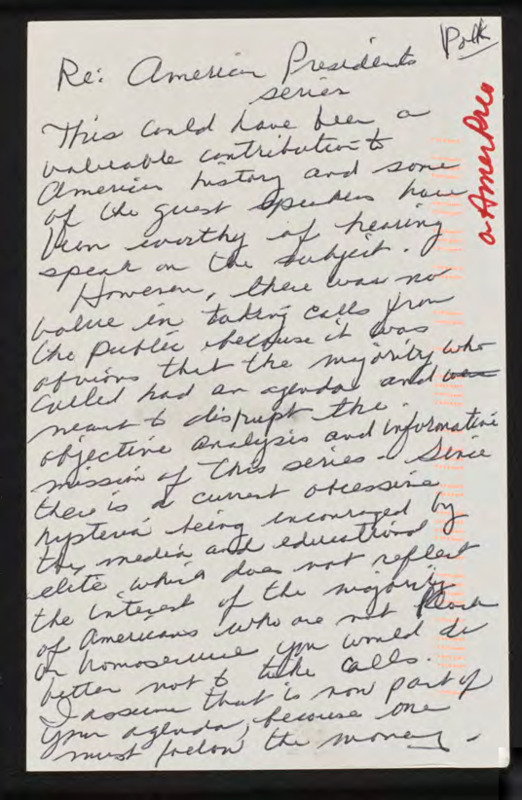 Polk
Re: American Presidents
series
a Amer Pres
This could have been a
valueable contribution to
American history and some
of the guest speakers have
been worthy of hearing
speak on the subject.
However, there was no
value in taking calls from
the public because it was
obvious that the majority who
called had an agenda and
meant to disrupt the
objective analysis and informative
mission of this series - Since
there is a current obcessive
hysteria being encouraged by
the media and educational
elite which does not reflect
the interest of the majority
of Americans who are not Black
or homosexual you would do
better not to take calls.
I assume that is now part of
your agenda, because one
must follow the money -